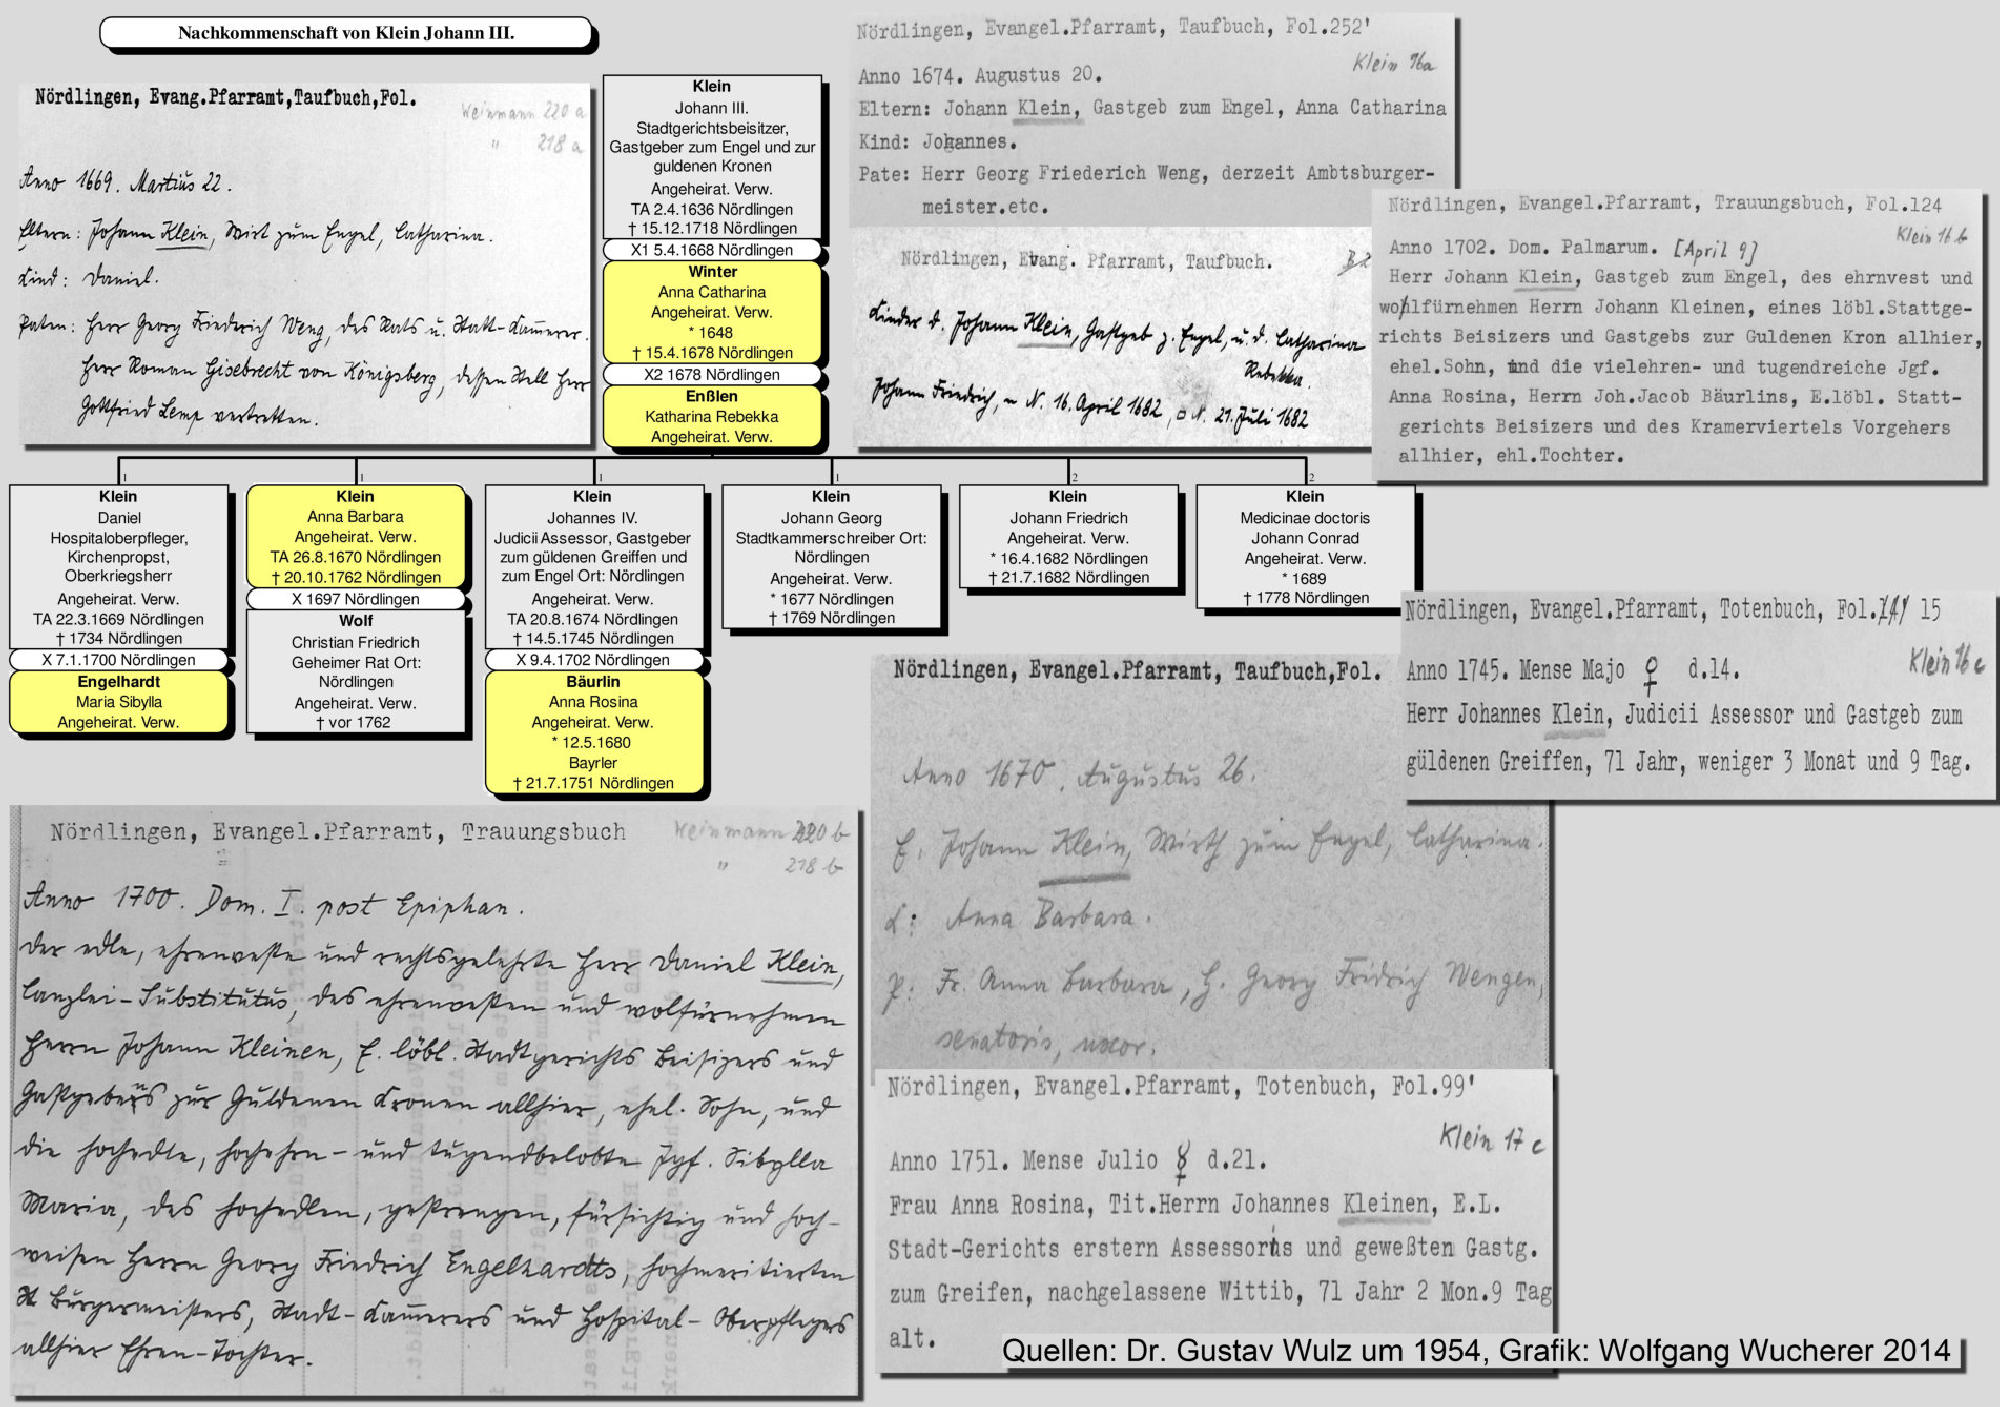 Nachkommenschaft von Klein Johann III.
Nördlingen, Evang.Pfarramt,Taufbuch,Fol.
Weinmann 220 a
" 218 a
Anno 1669. Martius 22.
Eltern: Johann Klein, Wirt zum Engel, Catharina.
Kind: Daniel.
Paten: Herr Georg Friedrich Weng, des Rats u. Statt-Kammerer.
Herr Roman Gisebrecht von Königsberg, dessen Stell Herr
Gottfried Lemp vertretten.
Klein
Johann III.
Stadtgerichtsbeisitzer,
Gastgeber zum Engel und zur
guldenen Kronen
Angeheirat. Verw.
TA 2.4.1636 Nördlingen
† 15.12.1718 Nördlingen
X1 5.4.1668 Nördlingen
Winter
Anna Catharina
Angeheirat. Verw.
* 1648
† 15.4.1678 Nördlingen
X2 1678 Nördlingen
Enßlen
Katharina Rebekka
Angeheirat. Verw.
Nördlingen, Evangel.Pfarramt, Taufbuch, Fol.252'
Klein 16a
Anno 1674. Augustus 20.
Eltern: Johann Klein, Gastgeb zum Engel, Anna Catharina
Kind: Johannes.
Pate: Herr Georg Friederich Weng, derzeit Ambtsburger-
meister.etc.
Nördlingen, Evang. Pfarramt, Taufbuch.
Kinder d. Johann Klein, Gastgeb z. Engel, u. d. Catharina
Rebekka.
Johann Friedrich, ~ N. 16. April 1682, □ N. 21. Juli 1682
Nördlingen, Evangel.Pfarramt, Trauungsbuch, Fol.124
Klein 16 b
Anno 1702. Dom. Palmarum. [April 9]
Herr Johann Klein, Gastgeb zum Engel, des ehrnvest und
wohlfürnehmen Herrn Johann Kleinen, eines löbl.Stattge-
richts Beisizers und Gastgebs zur Guldenen Kron allhier,
ehel.Sohn, und die vielehren- und tugendreiche Jgf.
Anna Rosina, Herrn Joh.Jacob Bäurlins, E.löbl. Statt-
gerichts Beisizers und des Kramerviertels Vorgehers
allhier, ehl.Tochter.
1
1
1
1
2
2
Klein
Daniel
Hospitaloberpfleger,
Kirchenpropst,
Oberkriegsherr
Angeheirat. Verw.
TA 22.3.1669 Nördlingen
† 1734 Nördlingen
X 7.1.1700 Nördlingen
Engelhardt
Maria Sibylla
Angeheirat. Verw.
Klein
Anna Barbara
Angeheirat. Verw.
TA 26.8.1670 Nördlingen
† 20.10.1762 Nördlingen
X 1697 Nördlingen
Wolf
Christian Friedrich
Geheimer Rat Ort:
Nördlingen
Angeheirat. Verw.
† vor 1762
Klein
Johannes IV.
Judicii Assessor, Gastgeber
zum güldenen Greiffen und
zum Engel Ort: Nördlingen
Angeheirat. Verw.
TA 20.8.1674 Nördlingen
† 14.5.1745 Nördlingen
X 9.4.1702 Nördlingen
Bäurlin
Anna Rosina
Angeheirat. Verw.
* 12.5.1680
Bayrler
† 21.7.1751 Nördlingen
Klein
Johann Georg
Stadtkammerschreiber Ort:
Nördlingen
Angeheirat. Verw.
* 1677 Nördlingen
† 1769 Nördlingen
Klein
Johann Friedrich
Angeheirat. Verw.
* 16.4.1682 Nördlingen
† 21.7.1682 Nördlingen
Klein
Medicinae doctoris
Johann Conrad
Angeheirat. Verw.
* 1689
† 1778 Nördlingen
Nördlingen, Evangel.Pfarramt, Totenbuch, Fol. 15
Klein 16 c
Anno 1745. Mense Majo ♀ d.14.
Herr Johannes Klein, Judicii Assessor und Gastgeb zum
güldenen Greiffen, 71 Jahr, weniger 3 Monat und 9 Tag.
Nördlingen, Evangel.Pfarramt, Taufbuch,Fol.
Anno 1670. Augustus 26.
E. Johann Klein, Wirth zum Engel, Catharina.
K: Anna Barbara.
P: Fr. Anna Barbara, H. Georg Fridrich Wengen,
senatoris, uxor.
Nördlingen, Evangel.Pfarramt, Trauungsbuch
Weinmann 220 b
" 218 b
Anno 1700. Dom. I. post Epiphan.
Der edle, ehrenveste und rechtsgelehrte Herr Daniel Klein,
Canzlei-Substitutus, des ehrenvesten und wolfürnehmen
Herrn Johann Kleinen, E. löbl. Stadtgerichts Beisizers und
Gastgebens zur Guldenen Kronen allhier, ehel. Sohn, und
die hochedle, hochehrn- und tugendbelobte Jgf. Sibylla
Maria, des hochedlen, gestrengen, fürsichtig und hoch-
weisen Herrn Georg Friedrich Engelhardts, hochmeritierten
Burgermeisters, Stadt-Kammerers und Hospital-Oberpflegers
allhier Ehren-Tochter.
Nördlingen, Evangel.Pfarramt, Totenbuch, Fol.99'
Klein 17 c
Anno 1751. Mense Julio ☿ d.21.
Frau Anna Rosina, Tit.Herrn Johannes Kleinen, E.L.
Stadt-Gerichts erstern Assessoris und geweßten Gastg.
zum Greifen, nachgelassene Wittib, 71 Jahr 2 Mon.9 Tag
alt.
Quellen: Dr. Gustav Wulz um 1954, Grafik: Wolfgang Wucherer 2014